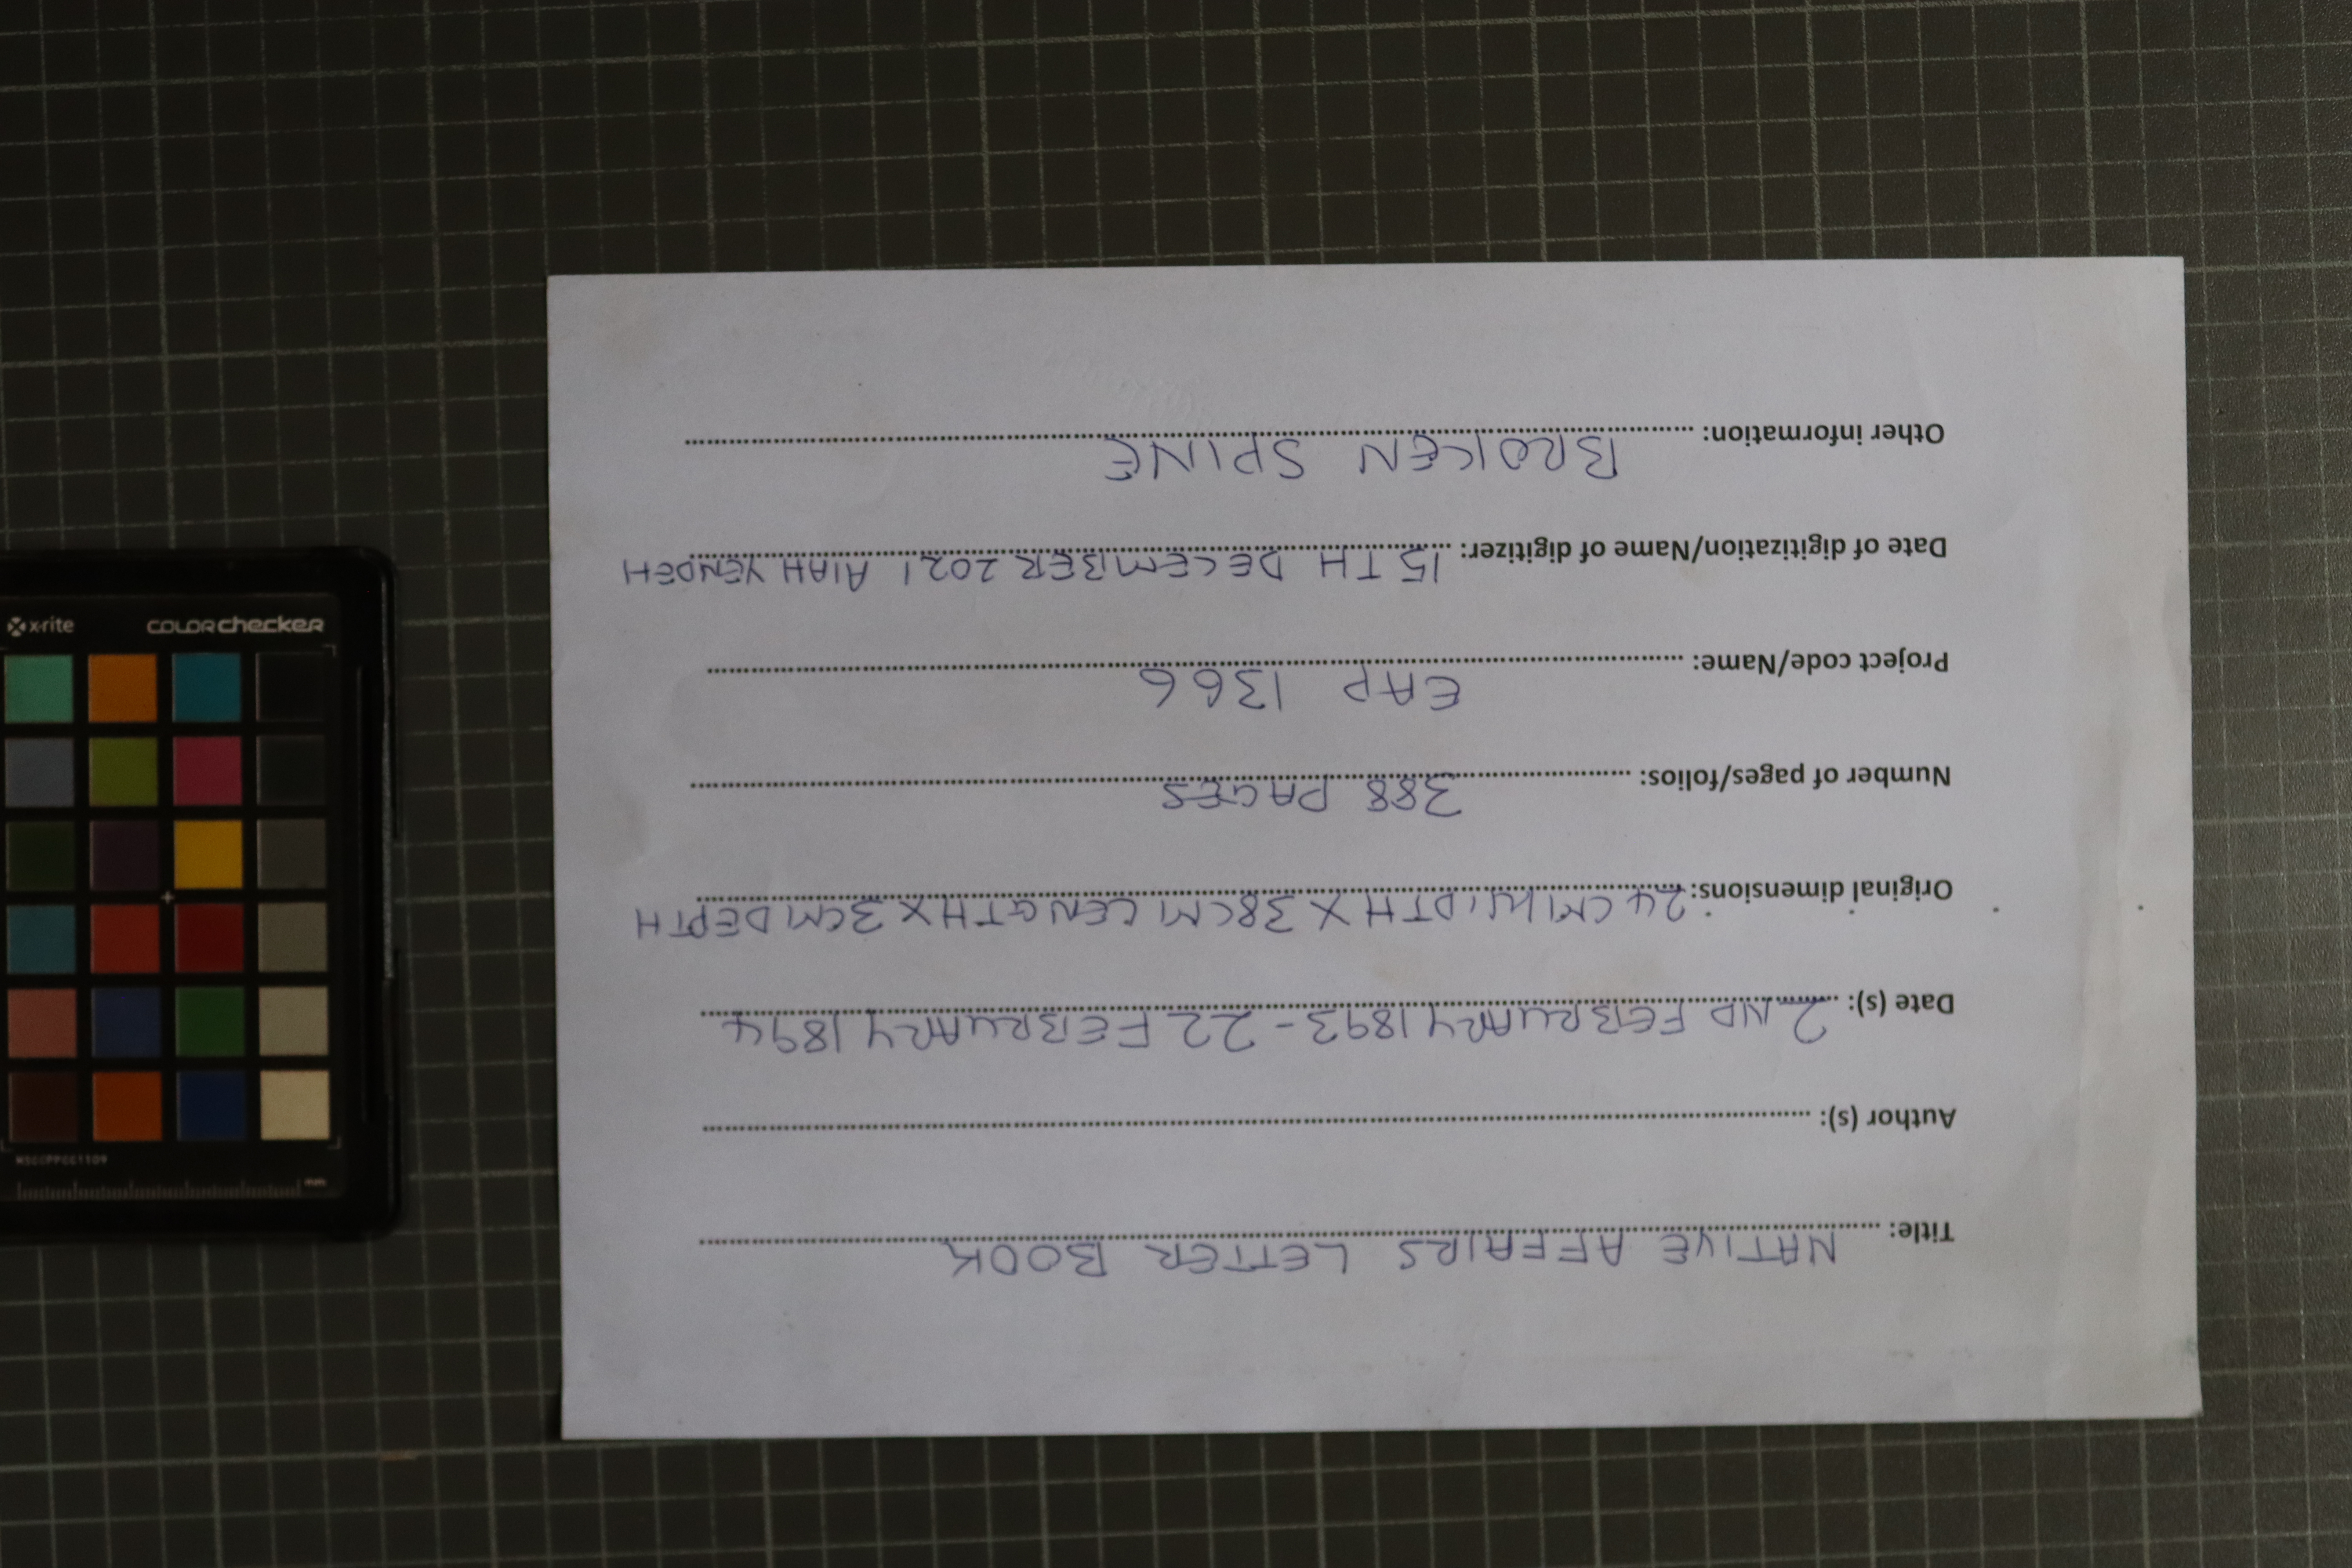 Title: NATIVE AFFAIRS LETTER BOOK
Author (s):
Date (s): 2ND FEBRUARY 1893 - 22 FEBRUARY 1894
Original dimensions: 24CM WIDTH X 38CM LENGTH X 3CM DEPTH
Number of pages/folios: 388 PAGES
Project code/Name: EAP 1366
Date of digitization/Name of digitizer: 15TH DECEMBER 2021 AIAH YENDEH
Other information: BROKEN SPINE
x-rite colorchecker
MSCCPPCC1109
mm